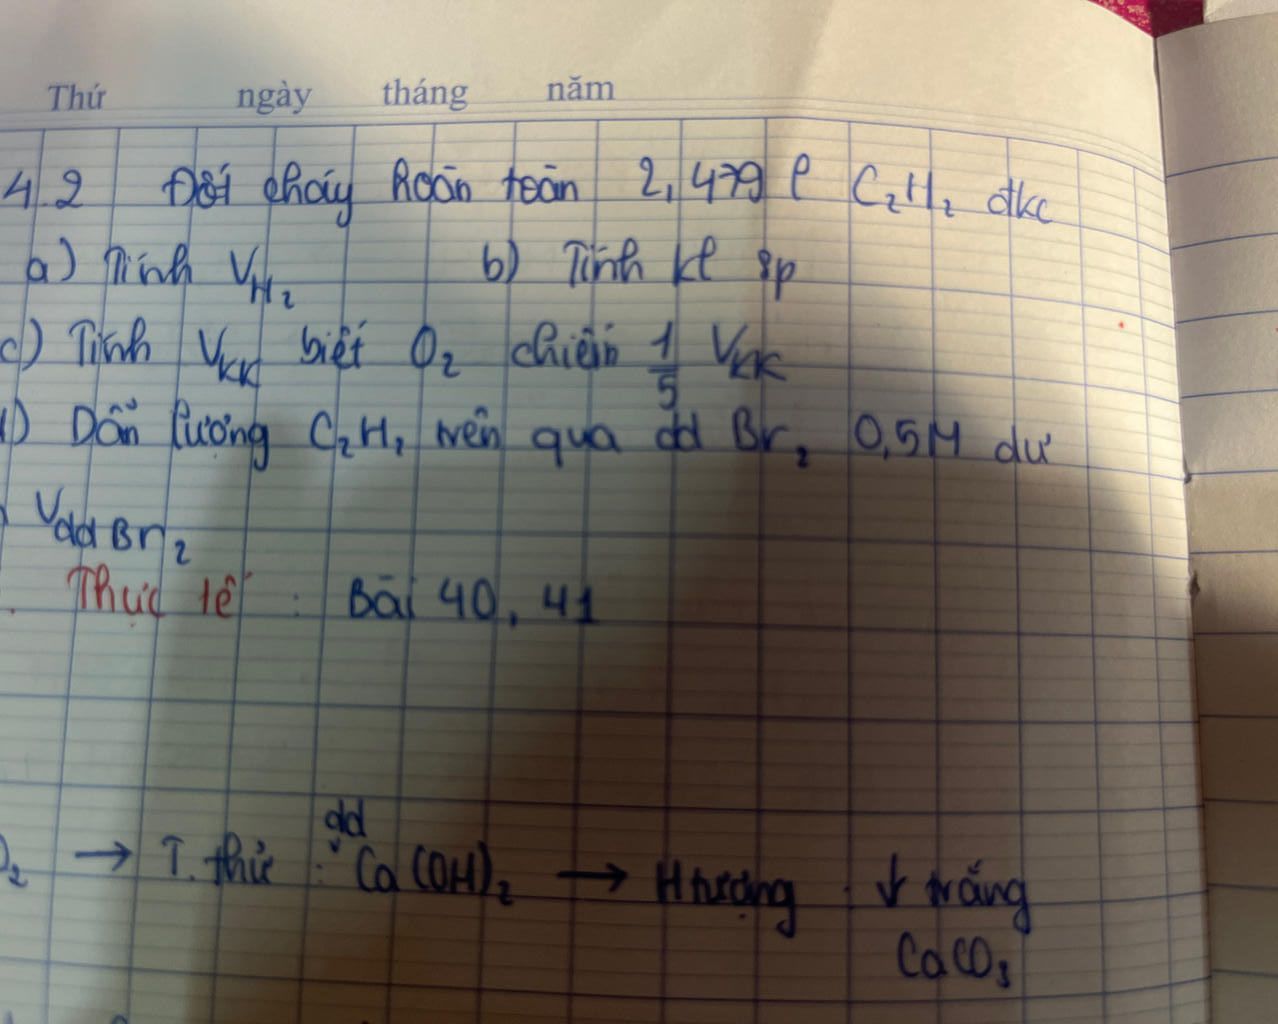 Thứ ngày tháng năm
4.2 Đốt cháy hoàn toàn 2,479 l C₂H₂ đkc
a) Tính V_H₂ b) Tính kl sp
c) Tính V_KK biết O₂ chiếm 1/5 V_KK
d) Dẫn lượng C₂H₂ trên qua dd Br₂ 0,5M dư
V dd Br₂
Thực tế : Bài 40, 41
O₂ → T.thử : dd Ca(OH)₂ → H tượng : ↓ trắng
CaCO₃